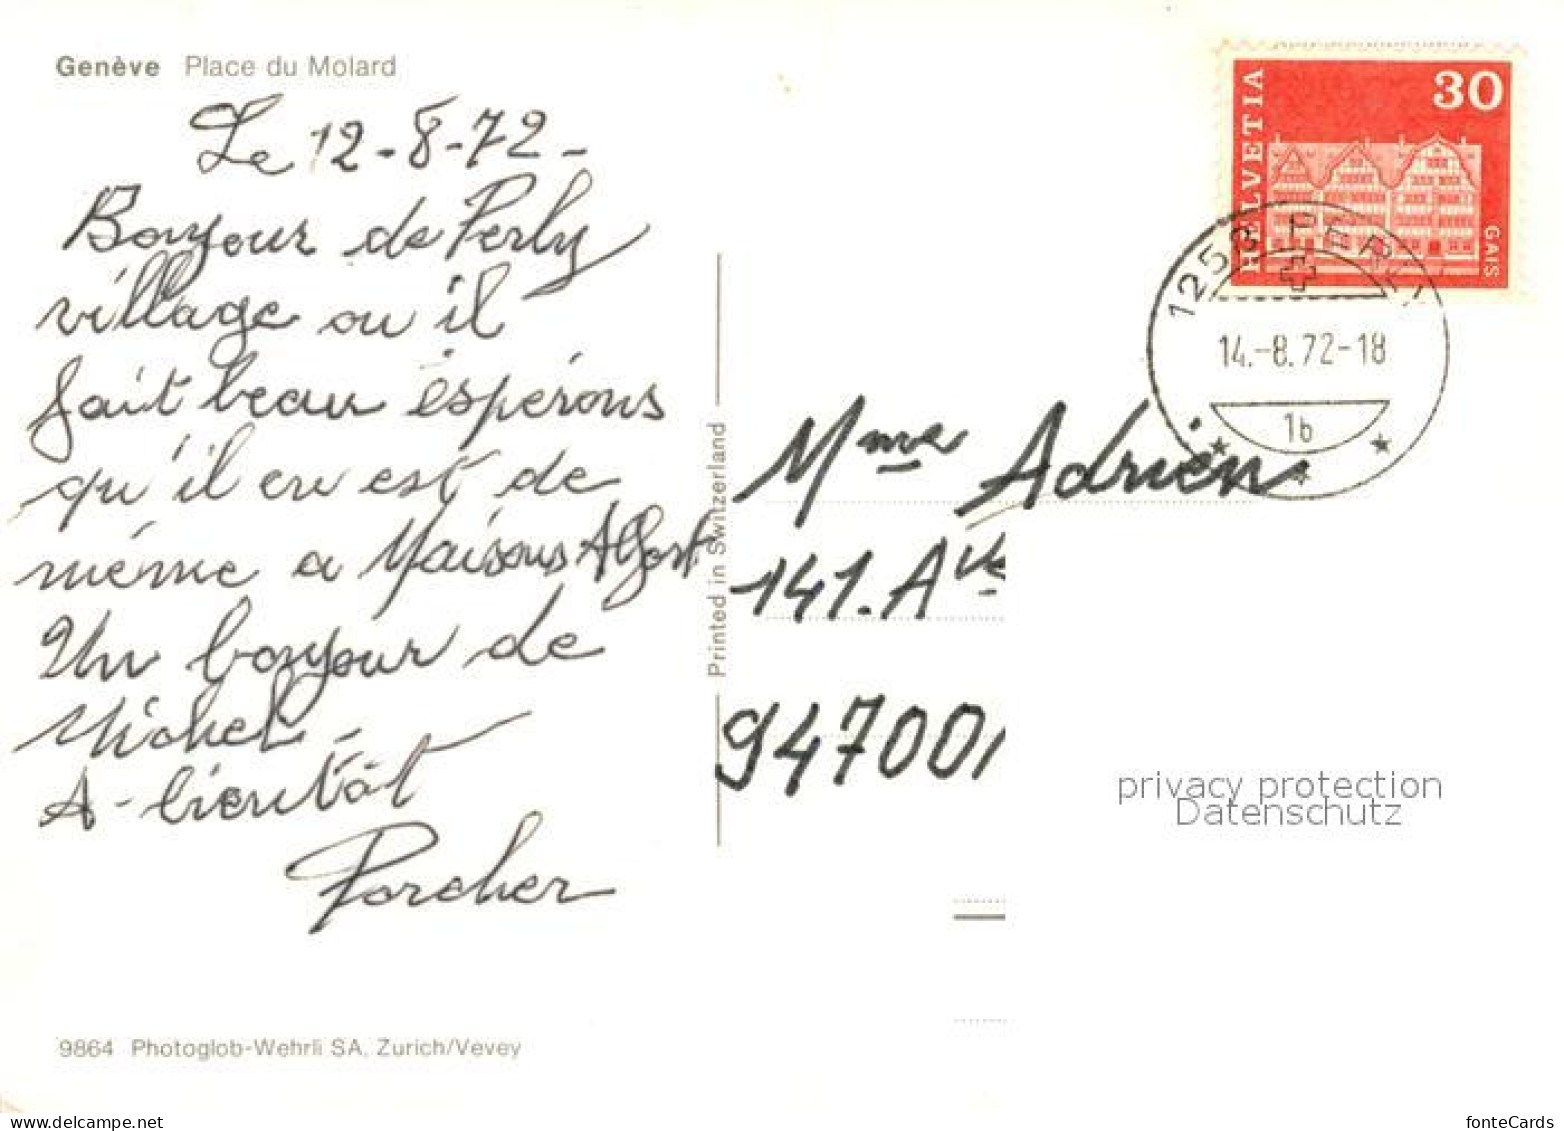 Genève Place du Molard
Le 12-8-72-
Bonjour de Perly
village ou il
fait beau espérons
qu'il en est de
même a Maisons Alfort
Un bonjour de
Michel -
A-bientôt
Porcher
9864 Photoglob-Wehrli SA, Zurich/Vevey
Printed in Switzerland
HELVETIA
30
GAIS
1258 PERLY
14.-8.72-18
1b
Mme Adrien
141. Ave
94700
privacy protection
Datenschutz
fonteCards
www.delcampe.net